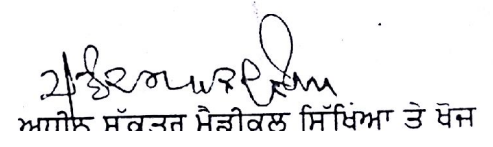 ਅਧੀਨ ਸਕੱਤਰ ਮੈਡੀਕਲ ਸਿੱਖਿਆ ਤੇ ਖੋਜ